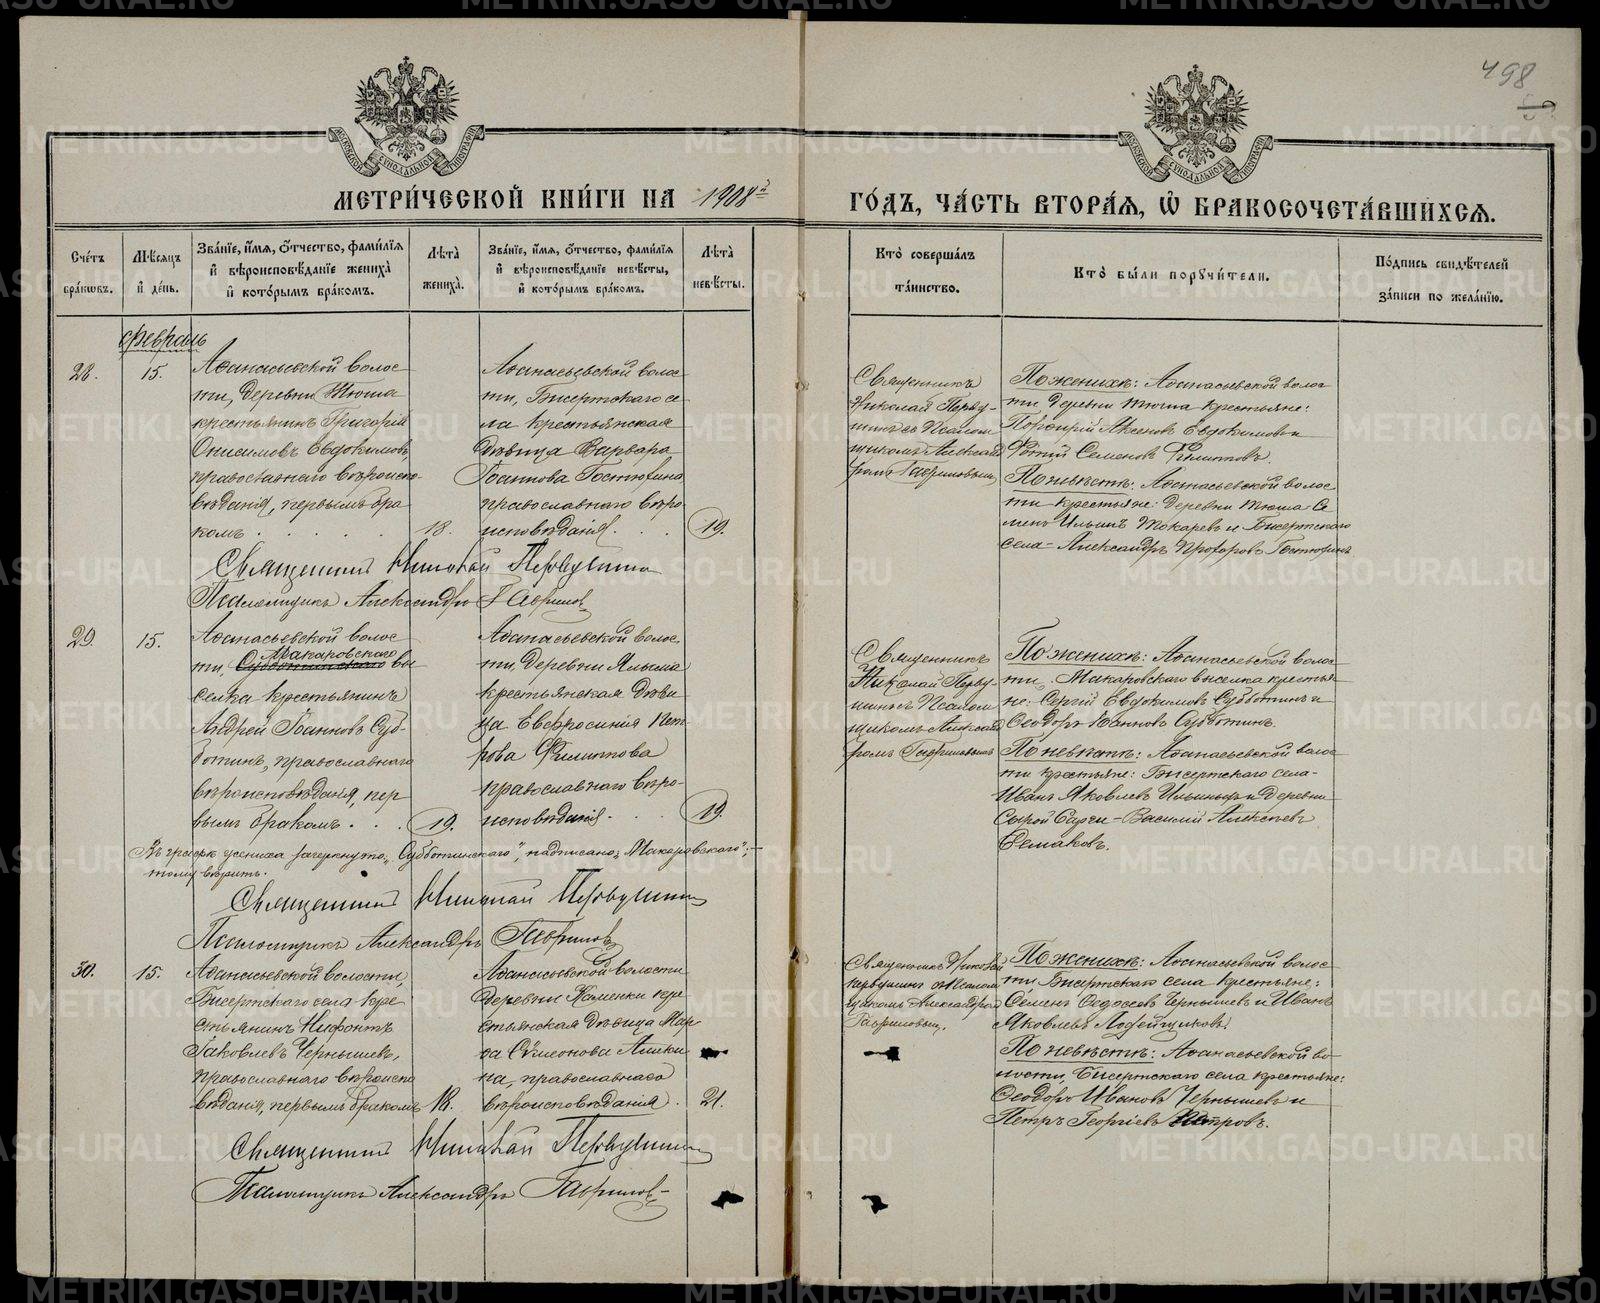 498
МЕТРИ́ЧЕСКОЙ КНИ́ГИ НА 1908й ГО́ДЪ, ЧА́СТЬ ВТОРА́Я, Ѽ БРАКОСОЧЕТА́ВШИХСЯ.
Сче́тъ бра́кѡвъ.
Мѣ́сяцъ и҆ де́нь.
Зва́нїе, и҆́мя, ѻ҆́тчество, фами́лїя и҆ вѣроисповѣ́данїе жениха̀ и҆ кото́рымъ бра́комъ.
Лѣта̀ жениха̀.
Зва́нїе, и҆́мя, ѻ҆́тчество, фами́лїя и҆ вѣроисповѣ́данїе невѣ́сты, и҆ кото́рымъ бра́комъ.
Лѣта̀ невѣ́сты.
Кто̀ соверша́лъ та́инство.
Кто̀ бы́ли порꙋчи́тели.
По́дпись свидѣ́телей за́писи по жела́нїю.
Февраль
28.
15.
Аѳанасьевской волос
ти, деревни Тюша
крестьянинъ Григорій
Онисимовъ Евдокимовъ
православнаго вѣроиспо-
вѣданія, первымъ бра
комъ . . . .
18.
Аѳанасьевской волос
ти, Бисертскаго се
ла крестьянская
дѣвица Варвара
Іоаннова Гостюхина
православнаго вѣро
исповѣданія. . .
19.
Священникъ
Николай Перву-
шинъ съ Псалом
щикомъ Александ
ромъ Гавриловымъ
По женихѣ: Аѳанасьевской волос
ти деревни Тюша крестьяне:
Порфирій Аксеновъ Евдокимовъ и
Фотій Семеновъ Филиповъ.
По невѣстѣ: Аѳанасьевской волос
ти крестьяне: деревни Тюша Се
менъ Ильинъ Токаревъ и Бисертскаго
села - Александръ Прохоровъ Гостюхинъ
Священникъ Николай Первушинъ
Псаломщикъ Александръ Гавриловъ
29.
15.
Аѳанасьевской волос
Макаровскаго
ти, Субботинскаго вы
селка крестьянинъ
Андрей Іоанновъ Суб-
ботинъ, православнаго
вѣроисповѣданія, пер
вымъ бракомъ. . .
19.
Аѳанасьевской волос
ти, деревни
крестьянская дѣви
ца Евфросинія Пет
рова Филиппова
православнаго вѣро-
исповѣданія. . .
19.
Священникъ
Николай Перву
шинъ съ Псалом
щикомъ Александ
ромъ Гавриловымъ
По женихѣ: Аѳанасьевской волос
ти, Макаровскаго выселка крестья
не: Сергій Евдокимовъ Субботинъ и
Ѳеодоръ Іоанновъ Субботинъ.
По невѣстѣ: Аѳанасьевской волос
ти крестьяне: Бисертскаго села-
Иванъ Яковлевъ Ильиныхъ и деревни
Сырой - Василій Алексѣевъ
Семаковъ.
Въ графѣ жениха зачеркнуто „Субботинскаго", надписано: „Макаровскаго"; -
тому вѣрить.
Священникъ Николай Первушинъ
Псаломщикъ Александръ Гавриловъ
30.
15.
Аѳанасьевской волости,
Бисертскаго села кре
стьянинъ Нифонтъ
Іаковлевъ Чернышевъ,
православнаго вѣроиспо
вѣданія, первымъ бракомъ
18.
Аѳанасьевской волости
деревни Каменки кре
стьянская дѣвица Мар
ѳа Симеонова
на, православнаго
вѣроисповѣданія.
21.
Священникъ Николай
Первушинъ съ Псалом
щикомъ Александромъ
Гавриловым.
По женихѣ: Аѳанасьевской волос
ти, Бисертскаго села крестьяне:
Семенъ Ѳедосѣевъ Чернышевъ и Иванъ
Яковлевъ
По невѣстѣ: Аѳанасьевской во-
лости, Бисертскаго села крестьяне:
Ѳеодоръ Ивановъ Чернышевъ и
Петръ Георгіевъ Петровъ.
Священникъ Николай Первушинъ
Псаломщикъ Александръ Гавриловъ
METRIKI.GASO-URAL.RU